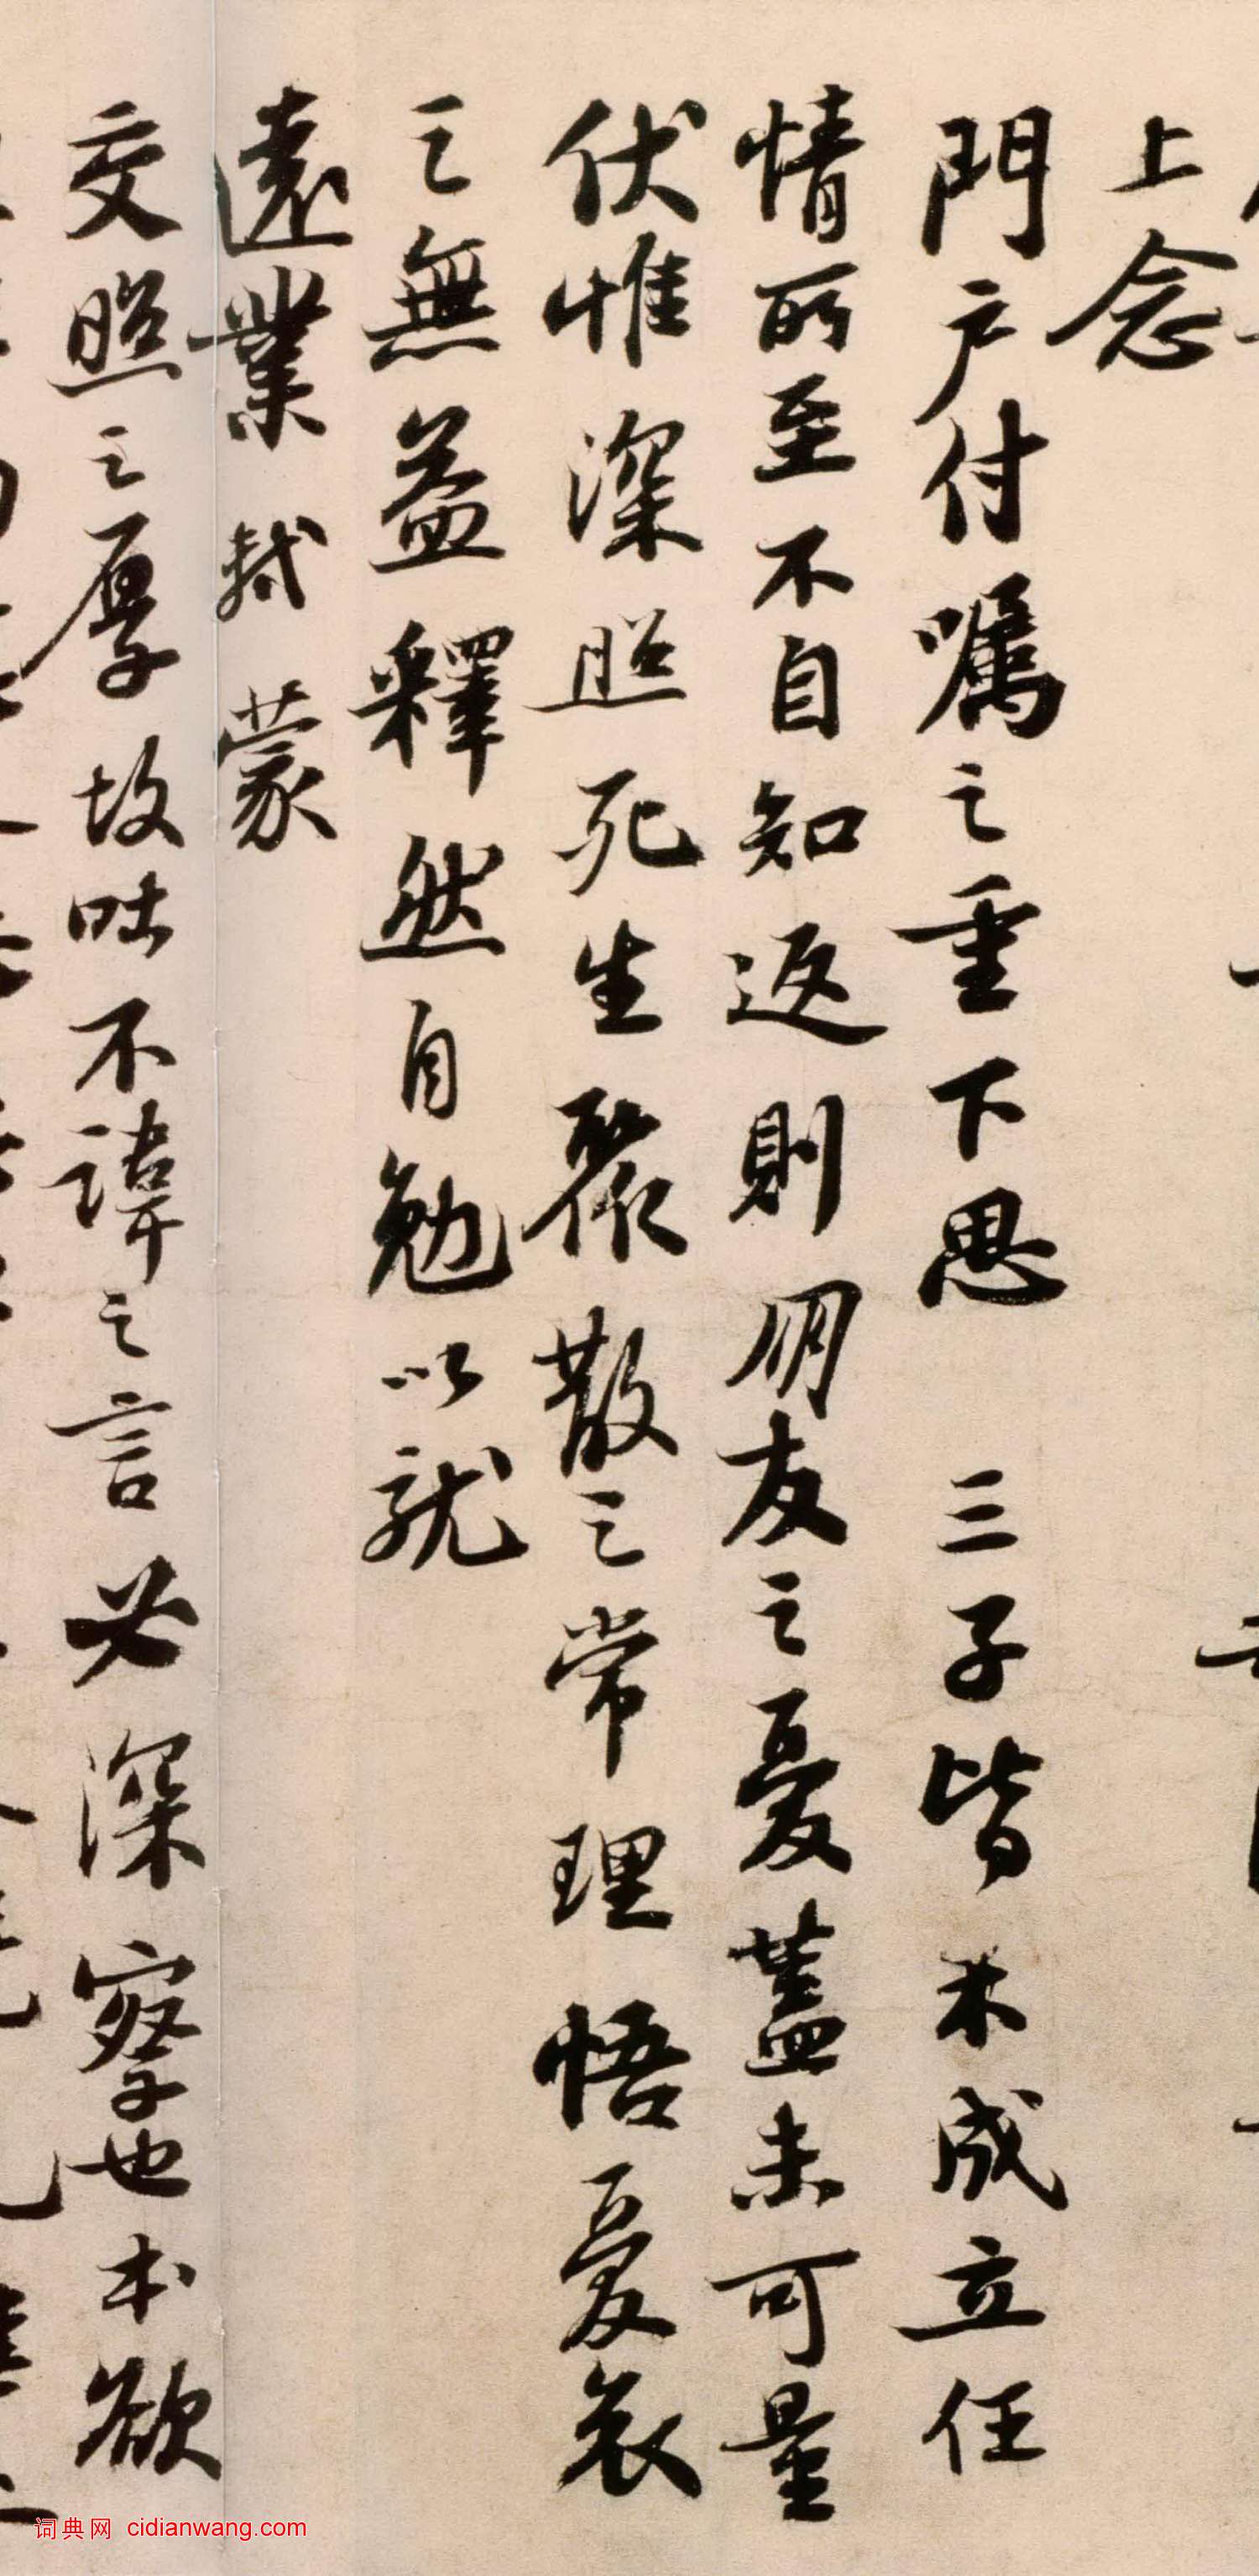 上念
門户付嘱之重下思　三子皆未成立任
情所至不自知返則朋友之憂蓋未可量
伏惟深照死生聚散之常理悟憂哀
之無益釋然自勉以就
遠業軾蒙
交照之厚故吐不諱之言必深察也本欲
词典网 cidianwang.com